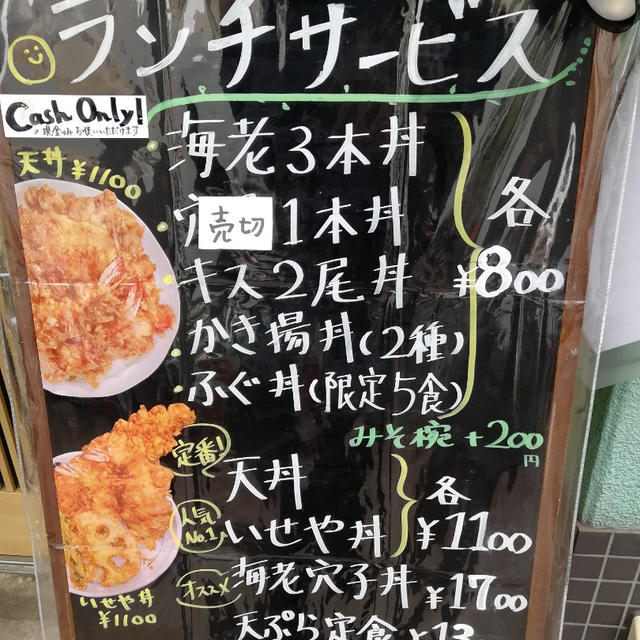 ランチサービス
Cash Only!
現金のみお使いいただけます
天丼 ¥1100
海老3本丼
売切 1本丼
キス2尾丼
かき揚丼(2種)
ふぐ丼(限定5食)
各 ¥800
みそ椀 +200円
定番!
天丼
人気No.1
いせや丼
各 ¥1100
オススメ
海老穴子丼 ¥1700
いせや丼 ¥1100
天ぷら定食 ¥13